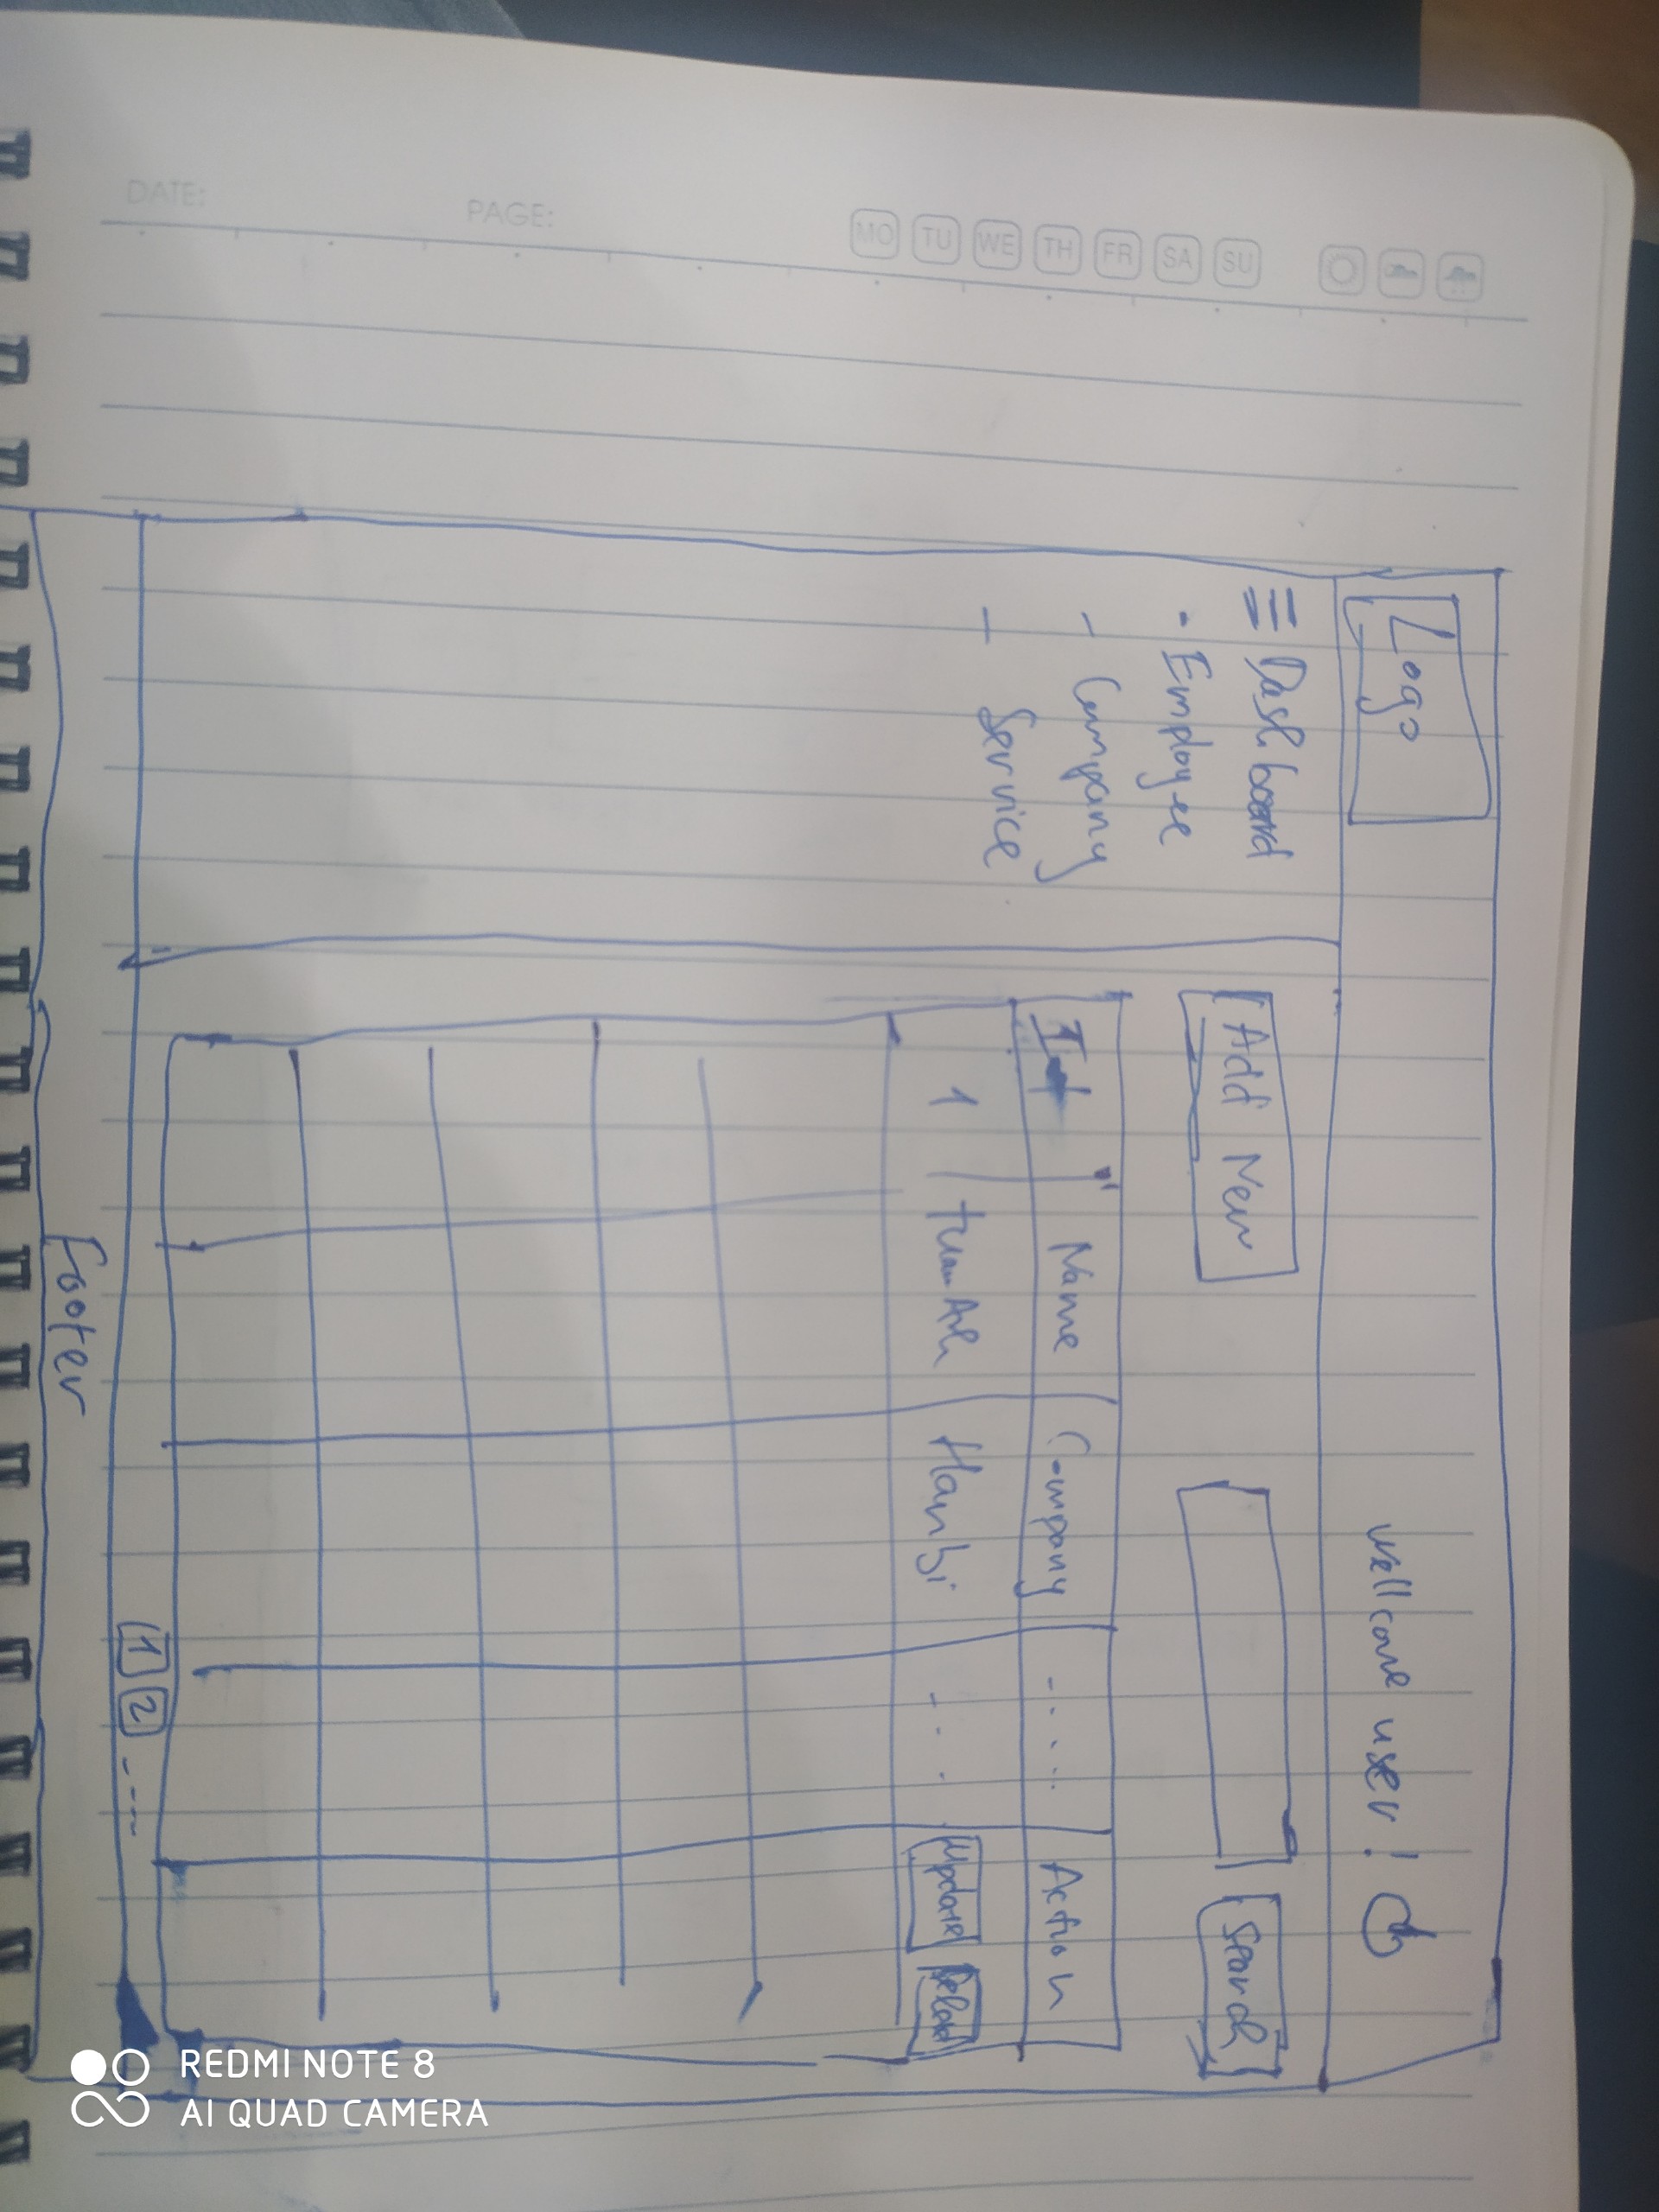 DATE: PAGE: MO TU WE TH FR SA SU
Logo
wellcome user!
Dashboard
Add New
Search
• Employee
- Company
- Service
Name Company .... Action
1 TuanAnh Hanbi ... Update Delete
1 2 ----
Footer
REDMI NOTE 8
AI QUAD CAMERA